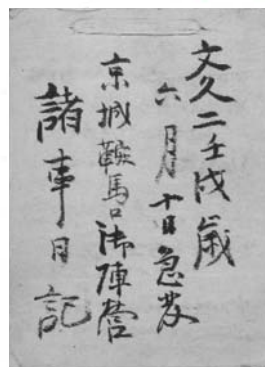 文久二壬戌歳
六月十日急发
京城鞍馬口御陣営
諸事日記